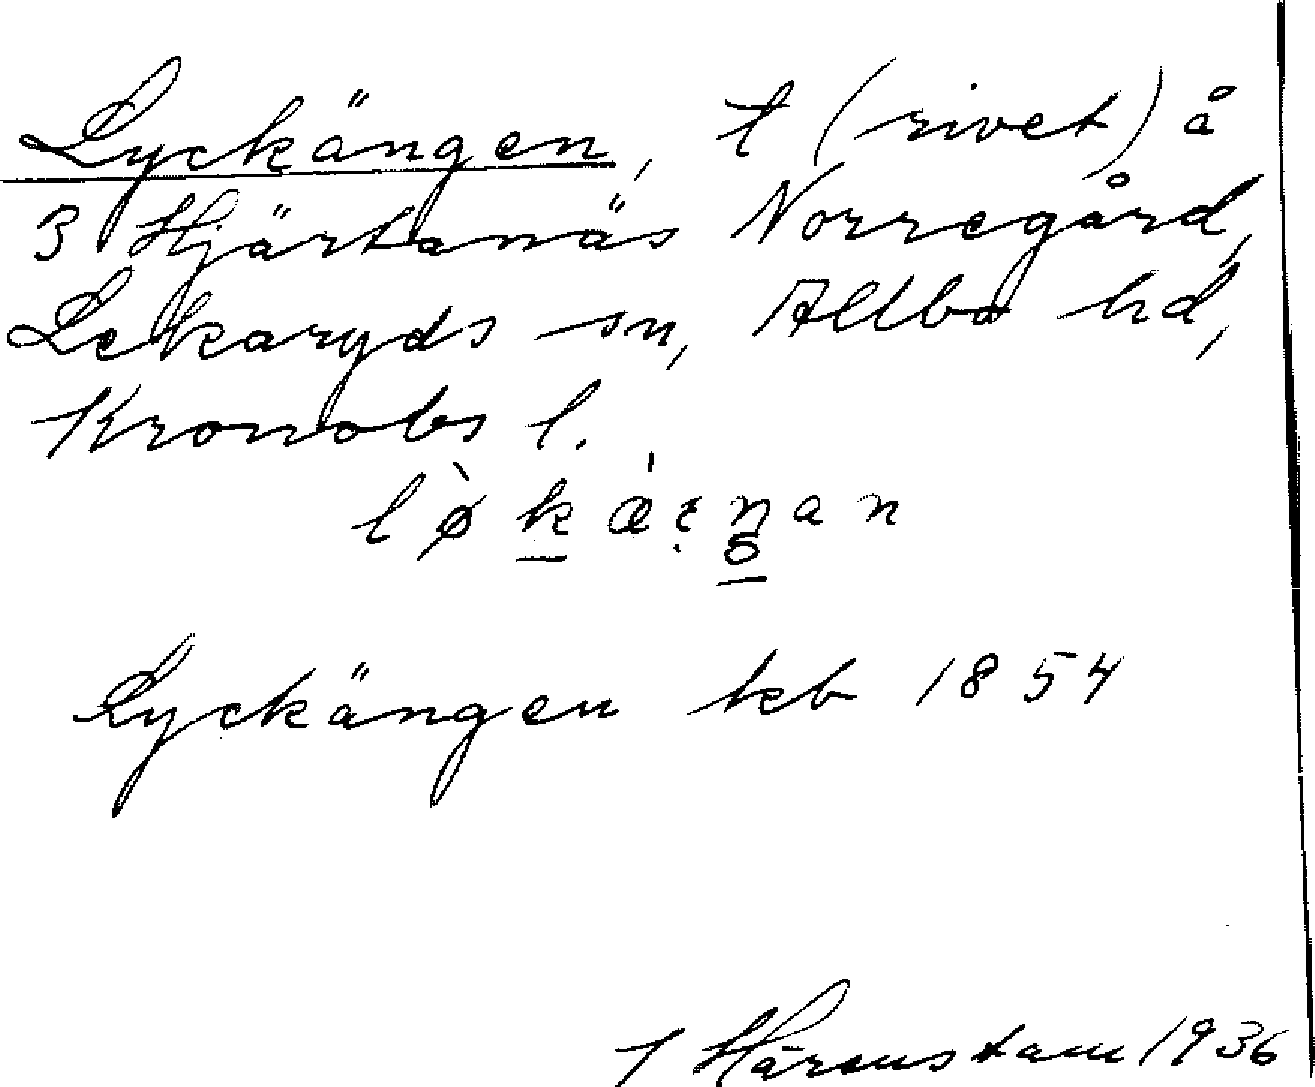 Lyckängen, t (rivet) å
3 Hjärtanäs Norregård,
Lekaryds sn, Allbo hd,
Kronobs l.
Lyckängen kb 1854
Härenstam 1936